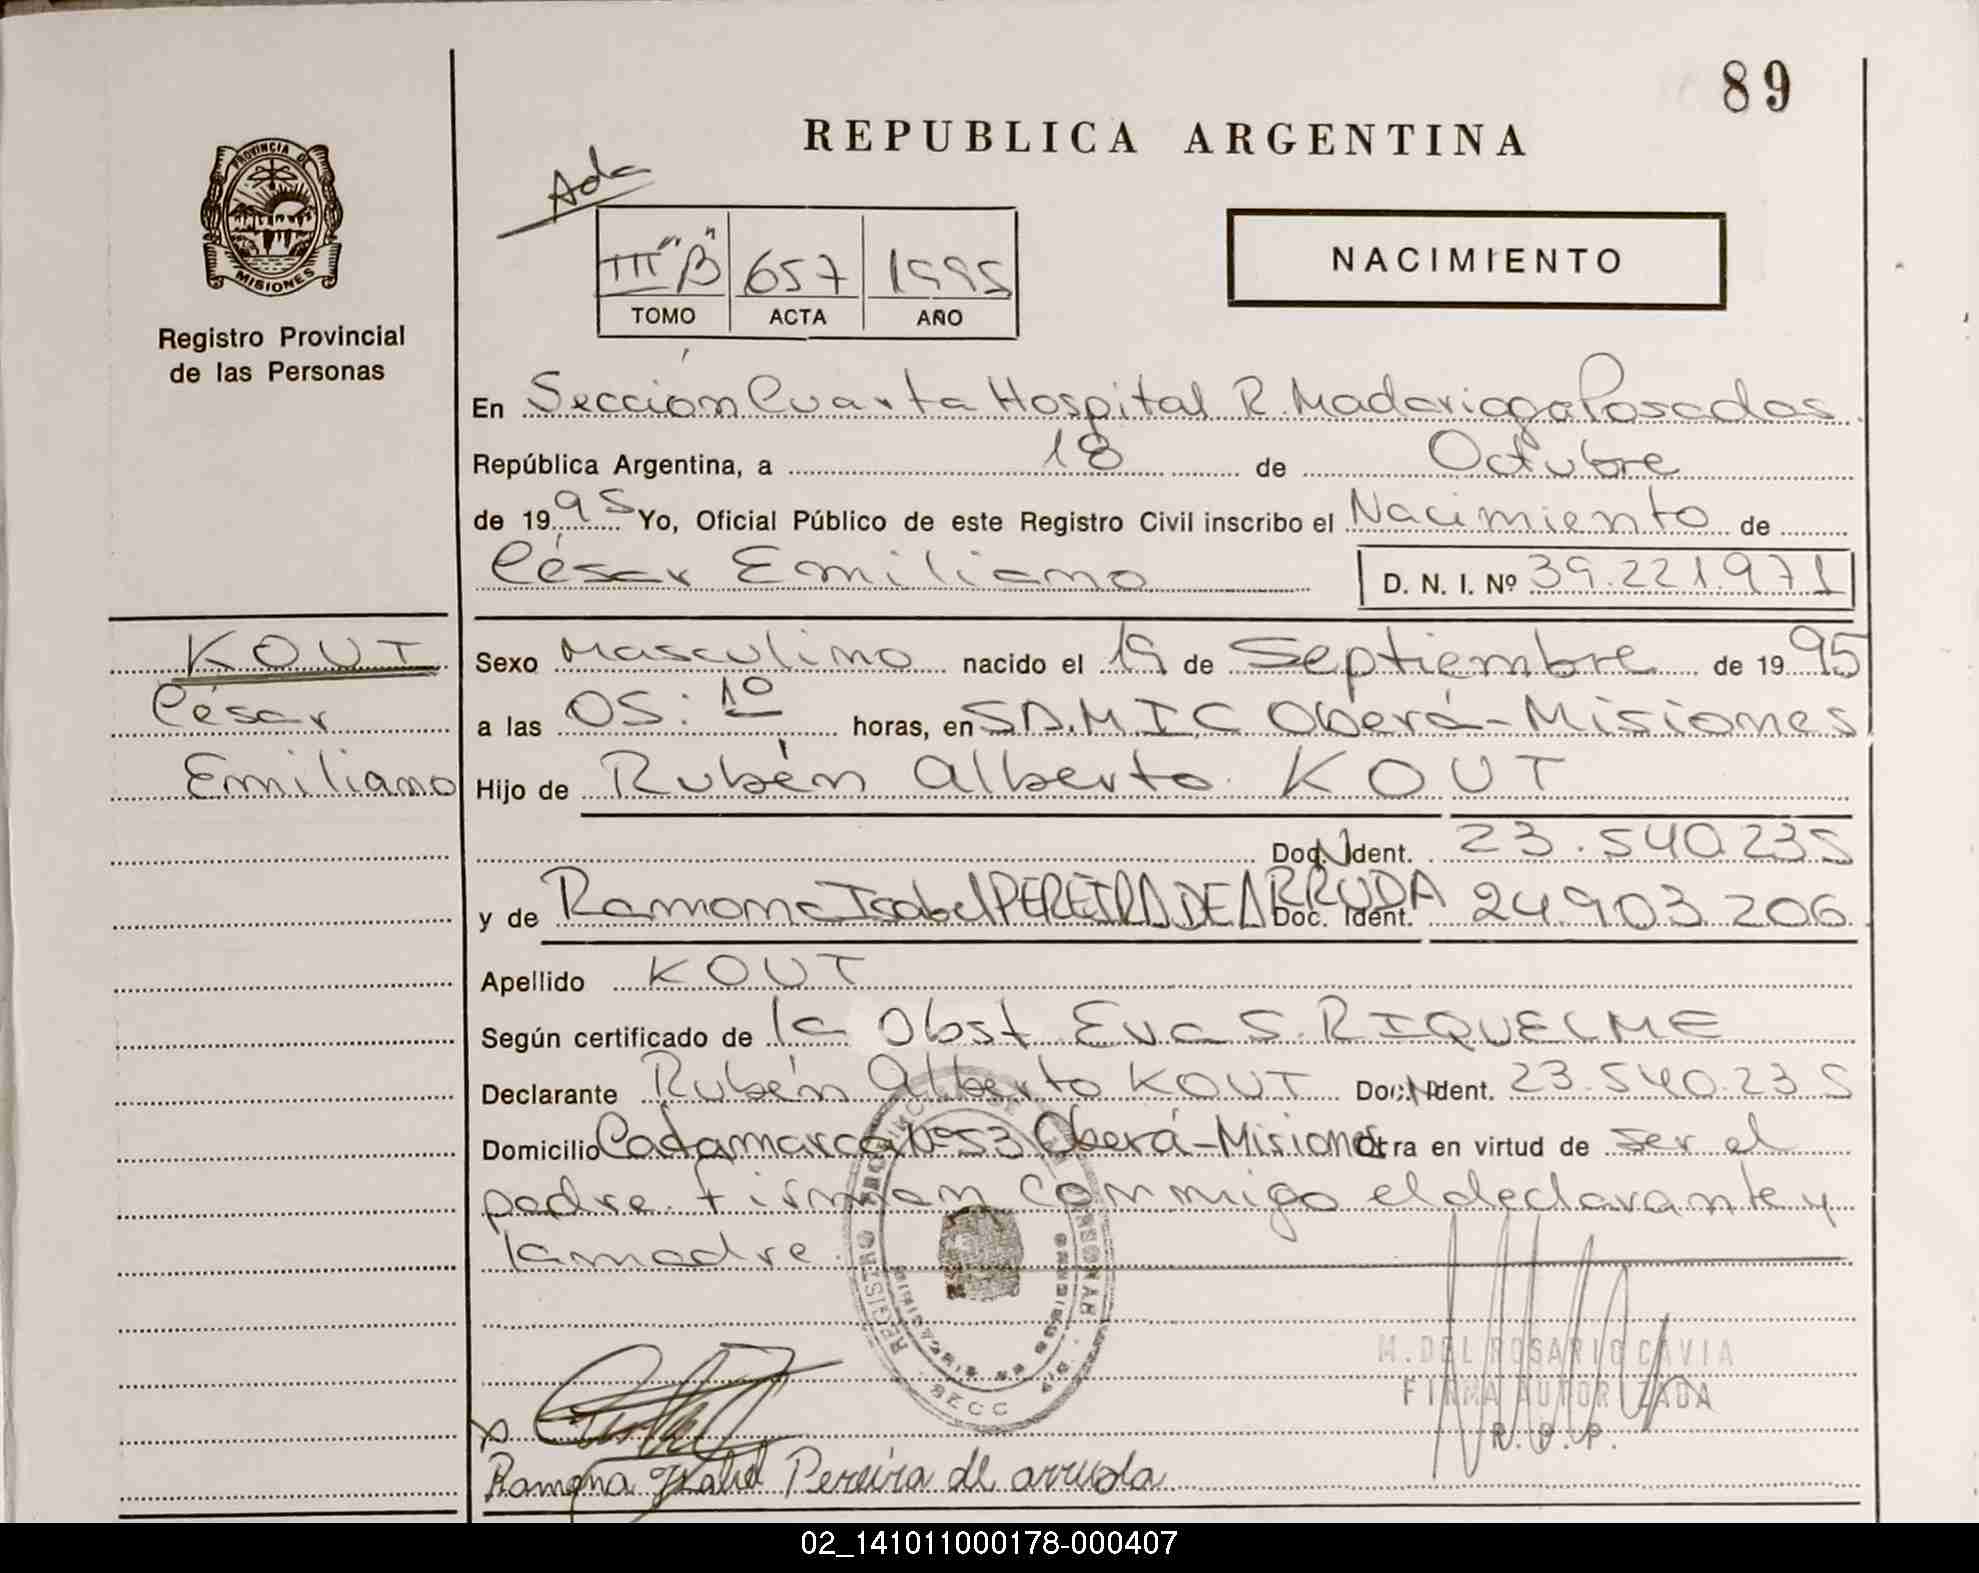 89
REPUBLICA ARGENTINA
PROVINCIA DE
MISIONES
Registro Provincial
de las Personas
Ada
III "B" 657 1995
TOMO ACTA AÑO
NACIMIENTO
En Sección Cuarta Hospital R. Madariaga Posadas
República Argentina, a 18 de Octubre
de 1995 Yo, Oficial Público de este Registro Civil inscribo el Nacimiento de
César Emiliano D. N. I. Nº 39.221.971
KOUT
César
Emiliano
Sexo Masculino nacido el 19 de Septiembre de 1995
a las 05:10 horas, en S.A.M.I.C Oberá-Misiones
Hijo de Rubén Alberto KOUT
Doc. Ident. 23.540.235
y de Ramona Isabel PEREIRA DE ARRUDA Doc. Ident. 24.903.206
Apellido KOUT
Según certificado de la Obst Eva S. RIQUELME
Declarante Rubén Alberto KOUT Doc. Ident. 23.540.235
Domicilio Catamarca Nº 53 Oberá-Misiones Obra en virtud de ser el
padre. Firman conmigo el declarante y
la madre.
REGISTRO PROVINCIAL DE LAS PERSONAS
SECC
M. DEL ROSARIO CAVIA
FIRMA AUTORIZADA
R. P. P.
Ramona Isabel Pereira de arruda
02_141011000178-000407